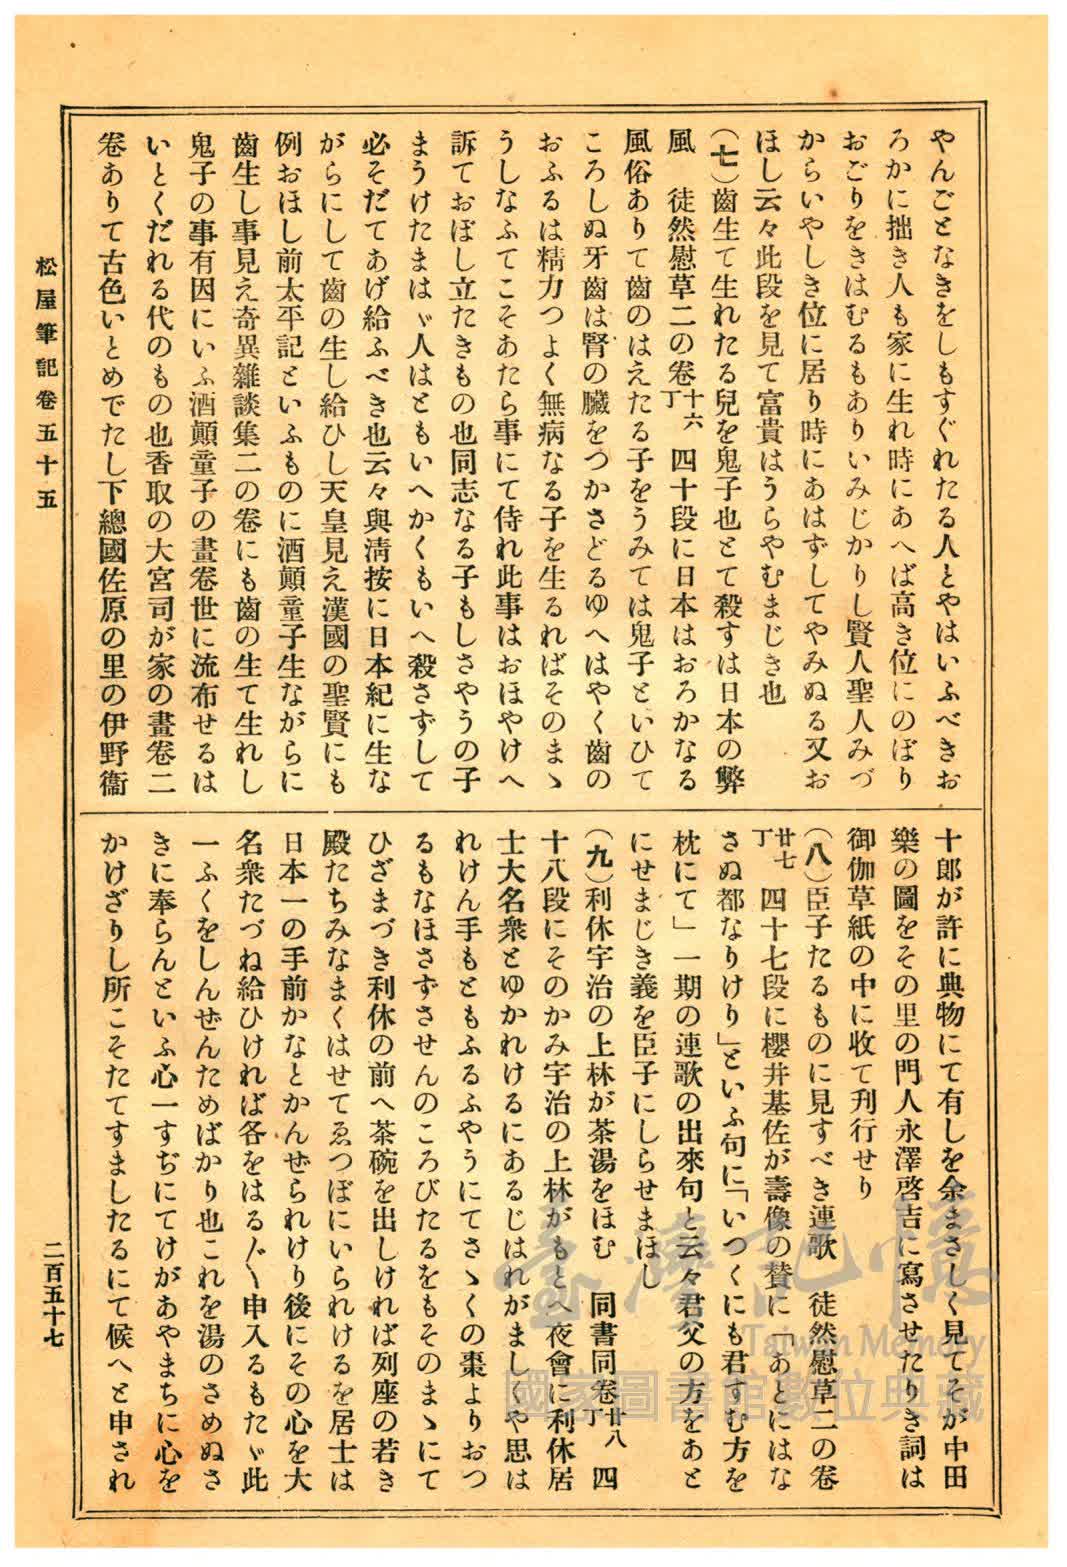 やんごとなきをしもすぐれたる人とやはいふべきお
ろかに拙き人も家に生れ時にあへば高き位にのぼり
おごりをきはむるもありいみじかりし賢人聖人みづ
からいやしき位に居り時にあはずしてやみぬる又お
ほし云々此段を見て富貴はうらやむまじき也
(七)齒生て生れたる兒を鬼子也とて殺すは日本の弊
風　徒然慰草二の卷十六丁　四十段に日本はおろかなる
風俗ありて齒のはえたる子をうみては鬼子といひて
ころしぬ牙齒は腎の臟をつかさどるゆへはやく齒の
おふるは精力つよく無病なる子を生るればそのまゝ
うしなふてこそあたら事にて侍れ此事はおほやけへ
訴ておぼし立たきもの也同志なる子もしさやうの子
まうけたまはゞ人はともいへかくもいへ殺さずして
必そだてあげ給ふべき也云々與淸按に日本紀に生な
がらにして齒の生し給ひし天皇見え漢國の聖賢にも
例おほし前太平記といふものに酒顛童子生ながらに
齒生し事見え奇異雜談集二の卷にも齒の生て生れし
鬼子の事有因にいふ酒顛童子の畫卷世に流布せるは
いとくだれる代のもの也香取の大宮司が家の畫卷二
卷ありて古色いとめでたし下總國佐原の里の伊野衞
十郞が許に典物にて有しを余まさしく見てそが中田
樂の圖をその里の門人永澤啓吉に寫させたりき詞は
御伽草紙の中に收て刊行せり
(八)臣子たるものに見すべき連歌　徒然慰草二の卷
廿七丁　四十七段に櫻井基佐が壽像の賛に「あとにはな
さぬ都なりけり」といふ句に「いつくにも君すむ方を
枕にて」一期の連歌の出來句と云々君父の方をあと
にせまじき義を臣子にしらせまほし
(九)利休宇治の上林が茶湯をほむ　同書同卷廿八丁　四
十八段にそのかみ宇治の上林がもとへ夜會に利休居
士大名衆とゆかれけるにあるじはれがましくや思は
れけん手もともふるふやうにてさゝくの棗よりおつ
るもなほさずさせんのころびたるをもそのまゝにて
ひざまづき利休の前へ茶碗を出しければ列座の若き
殿たちみなまくはせてゑつぼにいられけるを居士は
日本一の手前かなとかんぜられけり後にその心を大
名衆たづね給ひければ各をはる〲申入るもたゞ此
一ふくをしんぜんためばかり也これを湯のさめぬさ
きに奉らんといふ心一すぢにてけがあやまちに心を
かけざりし所こそたてすましたるにて候へと申され
松屋筆記卷五十五
二百五十七
臺灣記憶
Taiwan Memory
國家圖書館數位典藏